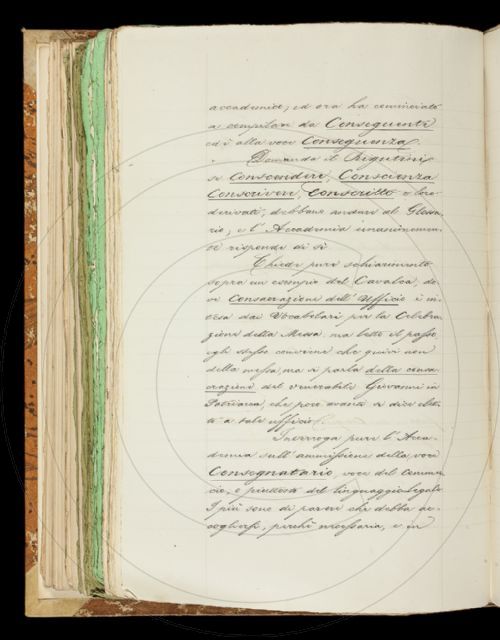 accademico; ed ora ha cominciato
a compilare da Conseguente
ed è alla voce Conseguenza.
Domanda il Rigutini
se Conscendere, Conscienza
Conscrivere, Conscritto e loro
derivati, debbano andare al Glossa-
rio; e l'Accademia unanimemen-
te risponde di sì.
Chiede pure schiarimento
sopra un esempio del Cavalca, do-
ve Consacrazione dell'Ufficio è in-
tesa dai Vocabolari per la Celebra-
zione della Messa, ma letto il passo,
egli stesso conviene che quivi non
della messa, ma si parla della consa-
crazione del venerabile Giovanni in
Patriarca, che poco avanti si dice elet-
to a tale ufficio.
Interroga pure l'Acca-
demia sull'ammissione della voce
Consegnatario, voce del Commer-
cio, e piuttosto del linguaggio legale.
I più sono di parere che debba ac-
cogliersi, perchè necessaria, e in